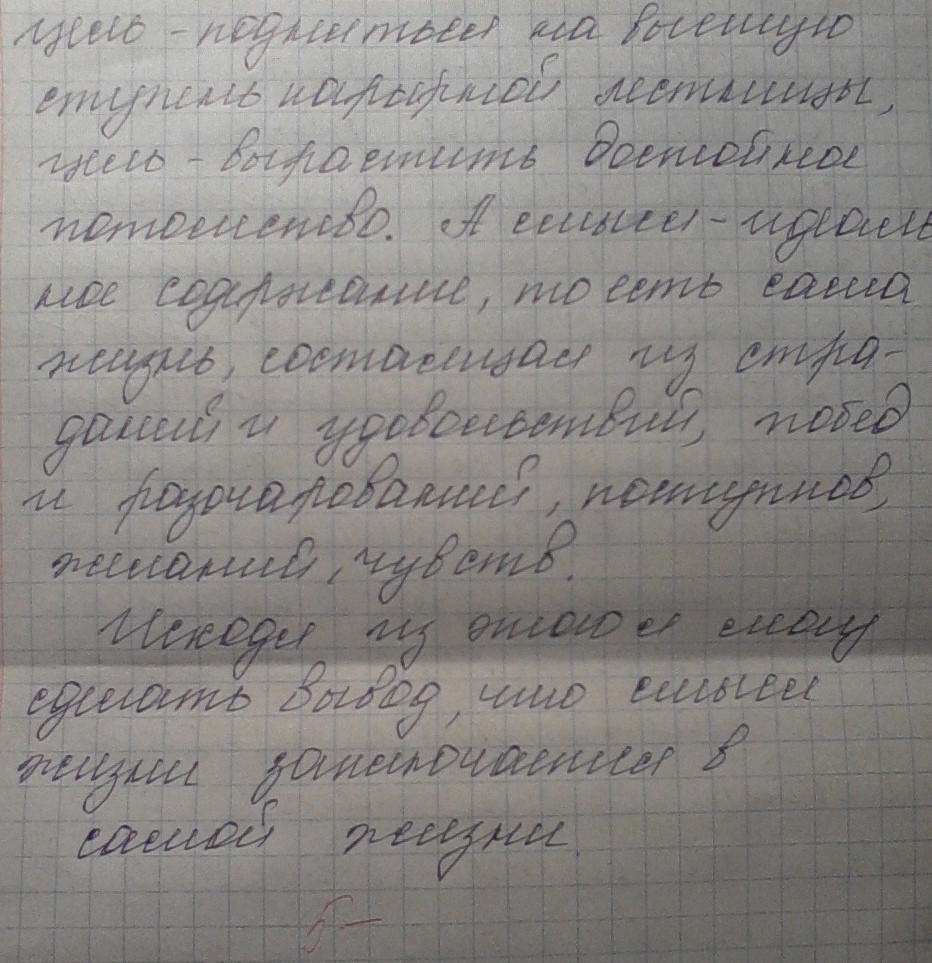 цель - подняться на высшую
ступень карьерной лестницы,
цель - вырастить достойное
потомство. А смысл - идеаль
ное содержание, то есть сама
жизнь, состоящая из стра-
даний и удовольствий, побед
и разочарований, поступков,
желаний, чувств.
Исходя из этого я могу
сделать вывод, что смысл
жизни заключается в
самой жизни.
5-